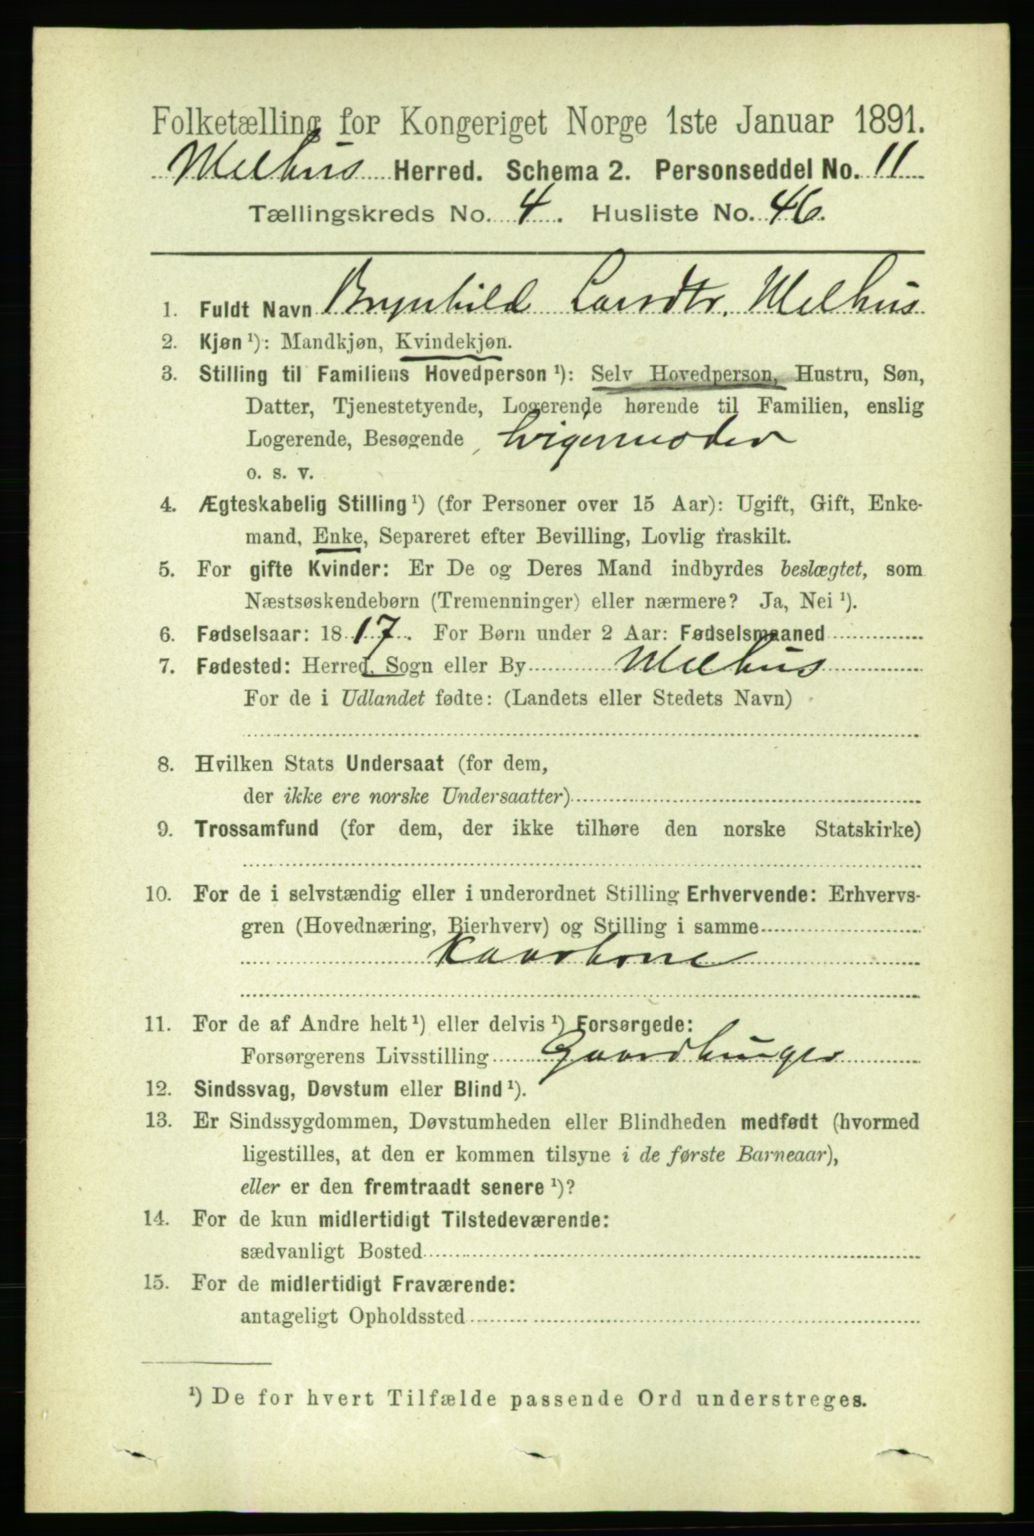 Folketælling for Kongeriget Norge 1ste Januar 1891.
Melhus Herred. Schema 2. Personseddel No. 11
Tællingskreds No. 4. Husliste No. 46.
1. Fuldt Navn Brynhild Larsdtr. Melhus
2. Kjøn ¹): Mandkjøn, Kvindekjøn.
3. Stilling til Familiens Hovedperson ¹): Selv Hovedperson, Hustru, Søn,
Datter, Tjenestetyende, Logerende hørende til Familien, enslig
Logerende, Besøgende Svigermoder
o. s. v.
4. Ægteskabelig Stilling ¹) (for Personer over 15 Aar): Ugift, Gift, Enke-
mand, Enke, Separeret efter Bevilling, Lovlig fraskilt.
5. For gifte Kvinder: Er De og Deres Mand indbyrdes beslægtet, som
Næstsøskendebørn (Tremenninger) eller nærmere? Ja, Nei ¹).
6. Fødselsaar: 1817. For Børn under 2 Aar: Fødselsmaaned
7. Fødested: Herred, Sogn eller By Melhus
For de i Udlandet fødte: (Landets eller Stedets Navn)
8. Hvilken Stats Undersaat (for dem,
der ikke ere norske Undersaatter)
9. Trossamfund (for dem, der ikke tilhøre den norske Statskirke)
10. For de i selvstændig eller i underordnet Stilling Erhvervende: Erhvervs-
gren (Hovednæring, Bierhverv) og Stilling i samme
Kaarkone
11. For de af Andre helt ¹) eller delvis ¹) Forsørgede:
Forsørgerens Livsstilling Gaardbruger
12. Sindssvag, Døvstum eller Blind ¹).
13. Er Sindssygdommen, Døvstumheden eller Blindheden medfødt (hvormed
ligestilles, at den er kommen tilsyne i de første Barneaar),
eller er den fremtraadt senere ¹)?
14. For de kun midlertidigt Tilstedeværende:
sædvanligt Bosted
15. For de midlertidigt Fraværende:
antageligt Opholdssted
¹) De for hvert Tilfælde passende Ord understreges.